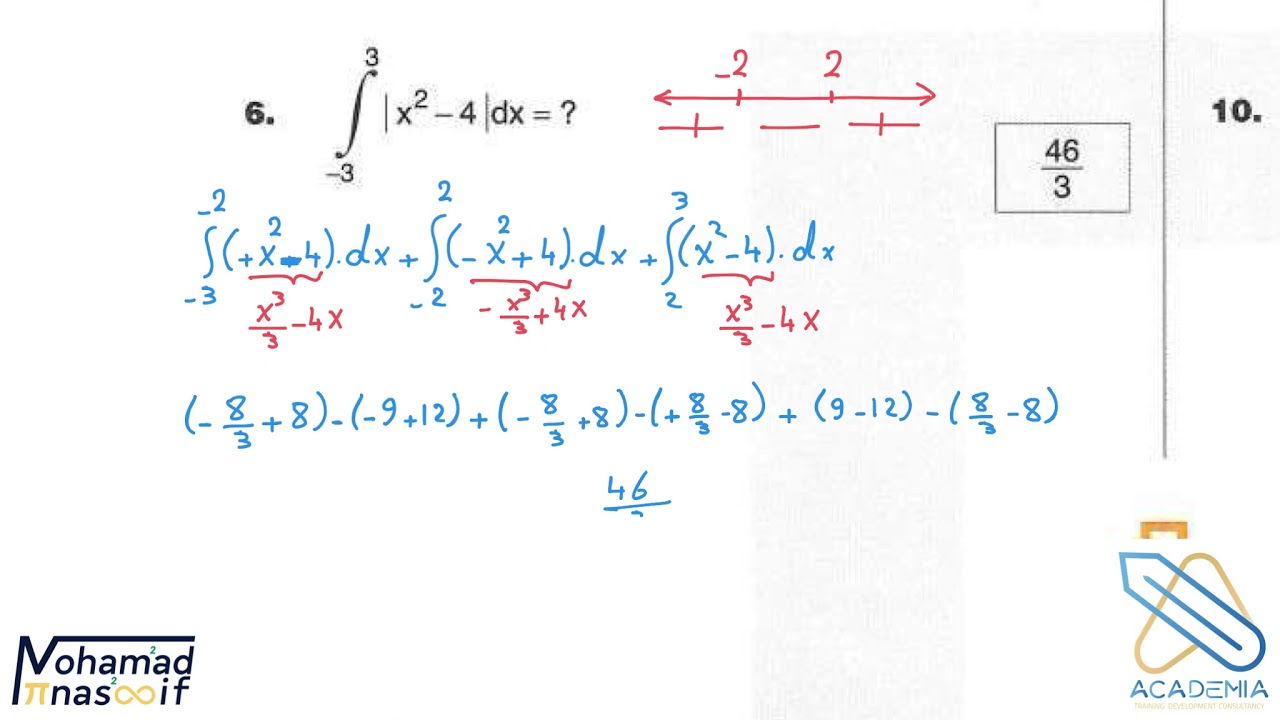 6. ∫₋₃³ |x² − 4|dx = ?
-2 2
+ — +
46/3
10.
∫₋₃⁻² (+x² - 4).dx + ∫₋₂² (-x² + 4).dx + ∫₂³ (x² - 4).dx
x³/3 - 4x -x³/3 + 4x x³/3 - 4x
(-8/3 + 8) - (-9 + 12) + (-8/3 + 8) - (+8/3 - 8) + (9 - 12) - (8/3 - 8)
46
Moham²ad
πnas²∞if
ACADEMIA
TRAINING DEVELOPMENT CONSULTANCY